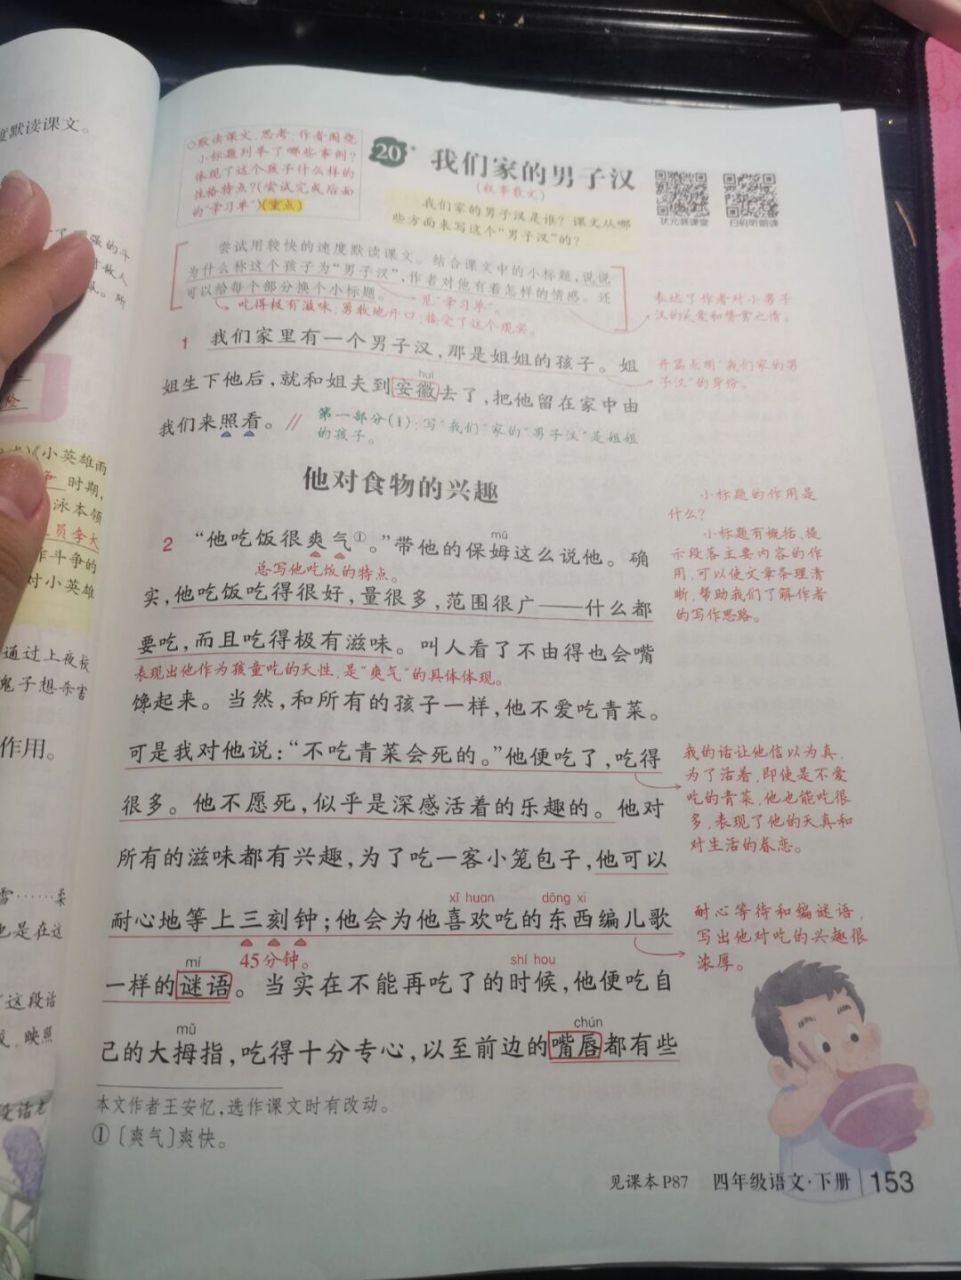 度默读课文。
◇默读课文,思考:作者围绕
小标题列举了哪些事例?
体现了这个孩子什么样的
性格特点?(尝试完成后面
的“学习单”)(重点)
20*
我们家的男子汉
(叙事散文)
我们家的男子汉是谁?课文从哪
些方面来写这个“男子汉”的?
状元成才路
扫码听朗读
尝试用较快的速度默读课文。结合课文中的小标题,说说
为什么称这个孩子为“男子汉”,作者对他有着怎样的情感。还
可以给每个部分换个小标题。
见“学习单”。
吃得极有滋味;勇敢地开口;接受了这个现实。
表达了作者对小男子
汉的关爱和赞赏之情。
1 我们家里有一个男子汉,那是姐姐的孩子。姐
开篇点明“我们家的男
子汉”的身份。
huī
姐生下他后,就和姐夫到安徽去了,把他留在家中由
我们来照看。//
第一部分(1):写“我们”家的“男子汉”是姐姐
的孩子。
他对食物的兴趣
小标题的作用是
什么?
小标题有概括、提
示段落主要内容的作
用,可以使文章条理清
晰,帮助我们了解作者
的写作思路。
mǔ
2 “他吃饭很爽气①。”带他的保姆这么说他。确
总写他吃饭的特点。
实,他吃饭吃得很好,量很多,范围很广——什么都
要吃,而且吃得极有滋味。叫人看了不由得也会嘴
表现出他作为孩童吃的天性,是“爽气”的具体体现。
馋起来。当然,和所有的孩子一样,他不爱吃青菜。
可是我对他说:“不吃青菜会死的。”他便吃了,吃得
很多。他不愿死,似乎是深感活着的乐趣的。他对
我的话让他信以为真,
为了活着,即使是不爱
吃的青菜,他也能吃很
多,表现了他的天真和
对生活的眷恋。
所有的滋味都有兴趣,为了吃一客小笼包子,他可以
xǐ huan dōng xi
耐心地等上三刻钟;他会为他喜欢吃的东西编儿歌
45分钟。
耐心等待和编谜语,
写出他对吃的兴趣很
浓厚。
mí shí hou
一样的谜语。当实在不能再吃了的时候,他便吃自
mǔ chún
己的大拇指,吃得十分专心,以至前边的嘴唇都有些
本文作者王安忆,选作课文时有改动。
①〔爽气〕爽快。
见课本P87 四年级语文·下册 153
《小英雄雨
时期,
泳本领
员李大
作斗争的
对小英雄
通过上夜校
鬼子想杀害
作用。
也是在这
这段话
映照
段话